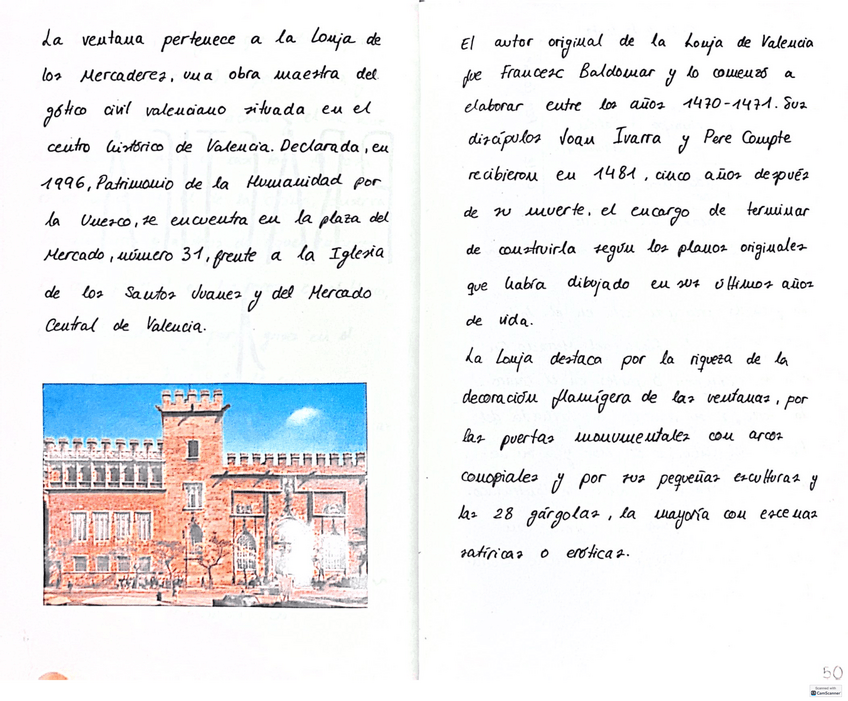 La ventana pertenece a la Lonja de
los Mercaderes, una obra maestra del
gótico civil valenciano situada en el
centro histórico de Valencia. Declarada, en
1996, Patrimonio de la Humanidad por
la Unesco, se encuentra en la plaza del
Mercado, número 31, frente a la Iglesia
de los Santos Juanes y del Mercado
Central de Valencia.
El autor original de la Lonja de Valencia
fue Francesc Baldomar y lo comenzó a
elaborar entre los años 1470-1471. Sus
discípulos Joan Ivarra y Pere Compte
recibieron en 1481, cinco años después
de su muerte, el encargo de terminar
de construirla según los planos originales
que había dibujado en sus últimos años
de vida.
La Lonja destaca por la riqueza de la
decoración flamígera de las ventanas, por
las puertas monumentales con arcos
conopiales y por sus pequeñas esculturas y
las 28 gárgolas, la mayoría con escenas
satíricas o eróticas.
50
Scanned with
CamScanner